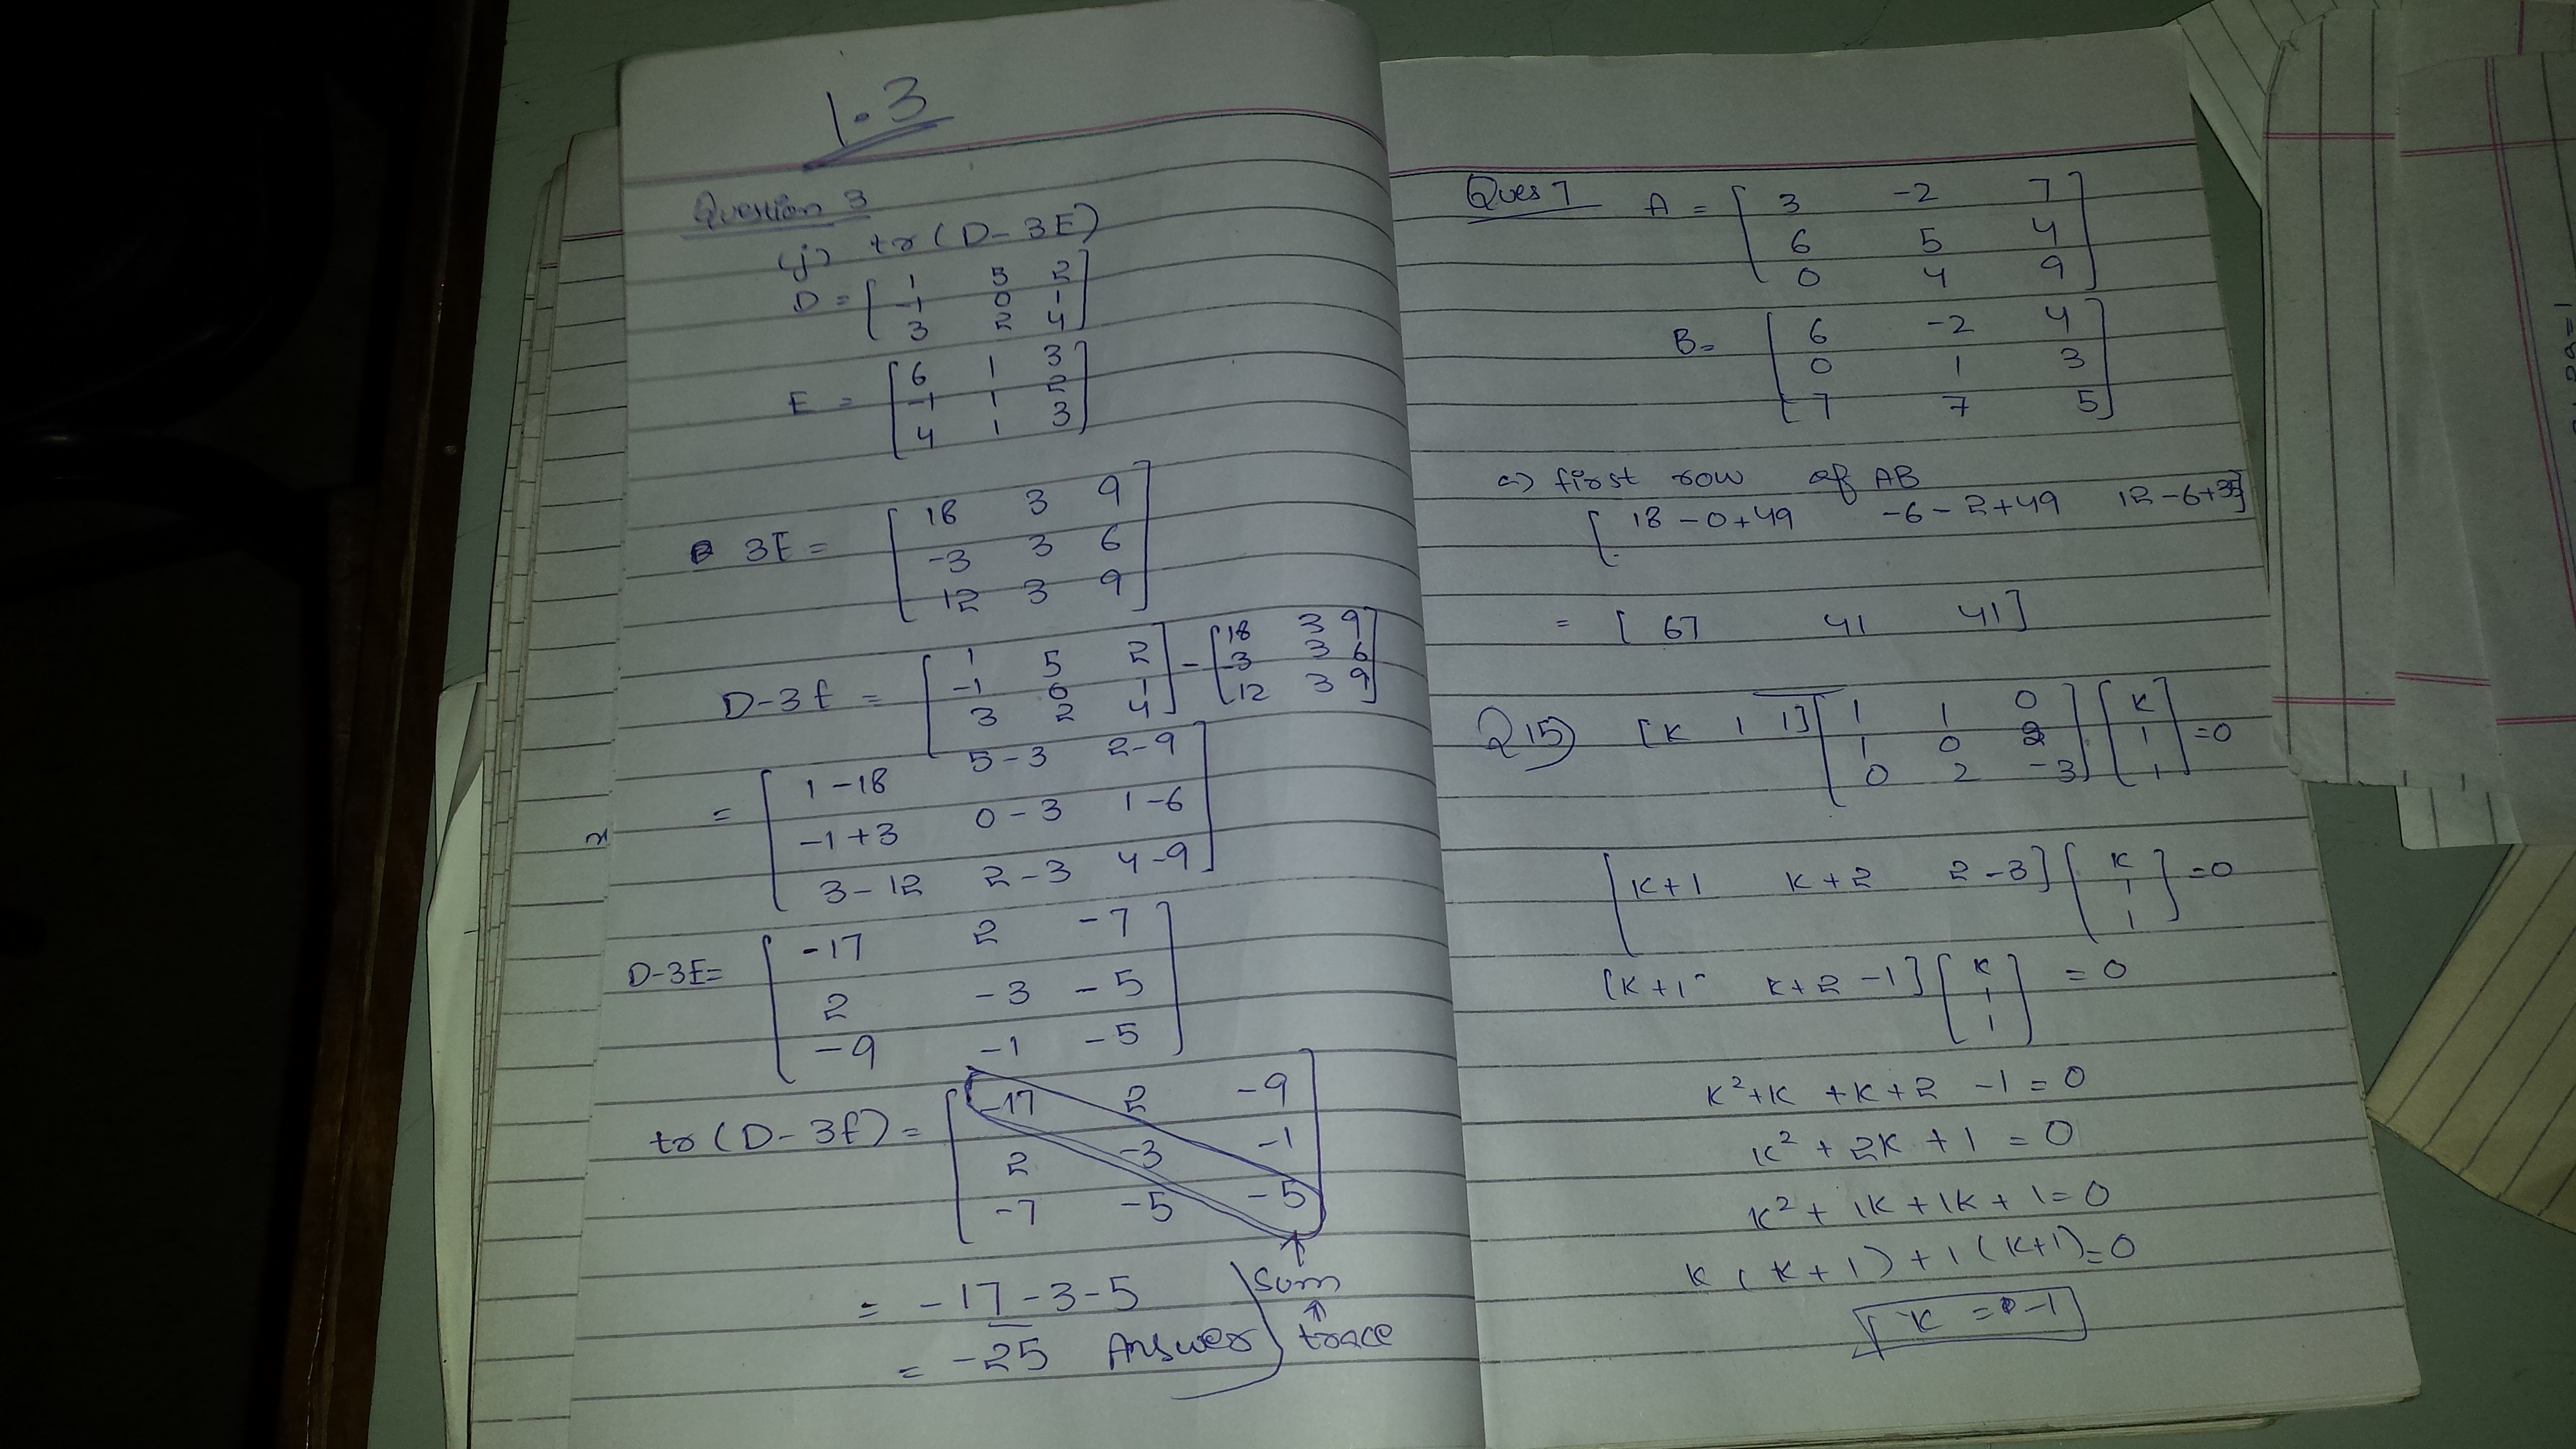 1.3
Question 3
(j) tr (D - 3E)
D = [ 1 5 2
-1 0 1
3 2 4 ]
E = [ 6 1 3
-1 1 2
4 1 3 ]
3E = [ 18 3 9
-3 3 6
12 3 9 ]
D-3E = [ 1 5 2
-1 0 1
3 2 4 ] - [ 18 3 9
-3 3 6
12 3 9 ]
= [ 1-18 5-3 2-9
-1+3 0-3 1-6
3-12 2-3 4-9 ]
D-3E= [ -17 2 -7
2 -3 -5
-9 -1 -5 ]
tr (D-3E) = [ -17 2 -9
2 -3 -1
-7 -5 -5 ]
= -17-3-5
= -25 Answer
sum
↑
trace
Ques 7 A = [ 3 -2 7
6 5 4
0 4 9 ]
B= [ 6 -2 4
0 1 3
7 7 5 ]
a) first row of AB
[ 18-0+49 -6-2+49 12-6+35 ]
= [ 67 41 41 ]
Q 15) [K 1 1] [ 1 1 0
1 0 2
0 2 -3 ] [ K
1
1 ] =0
[ K+1 K+2 2-3 ] [ K
1
1 ] =0
[K+1 K+2 -1] [ K
1
1 ] = 0
K²+K +K+2 -1 = 0
K² + 2K + 1 = 0
K² + 1K + 1K + 1 = 0
K (K+1) + 1 (K+1) = 0
K = -1